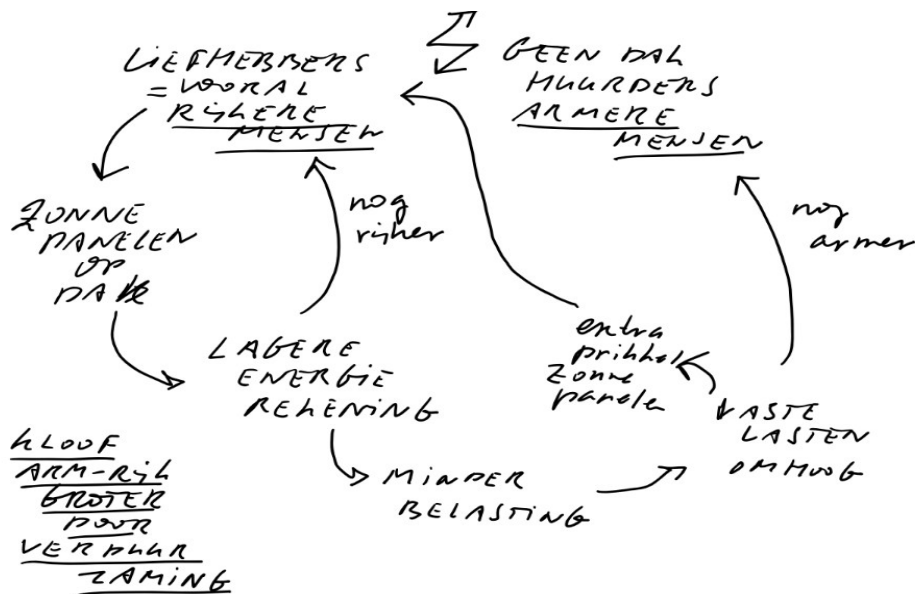 LIEFHEBBERS
= VOORAL
RIJKERE
MENSEN
GEEN DAK
HUURDERS
ARMERE
MENSEN
ZONNE
PANELEN
OP
DAK
nog
rijker
nog
armer
LAGERE
ENERGIE
REKENING
extra
prikkel
zonne
panelen
VASTE
LASTEN
OMHOOG
MINDER
BELASTING
KLOOF
ARM-RIJK
GROTER
DOOR
VERDUUR
ZAMING